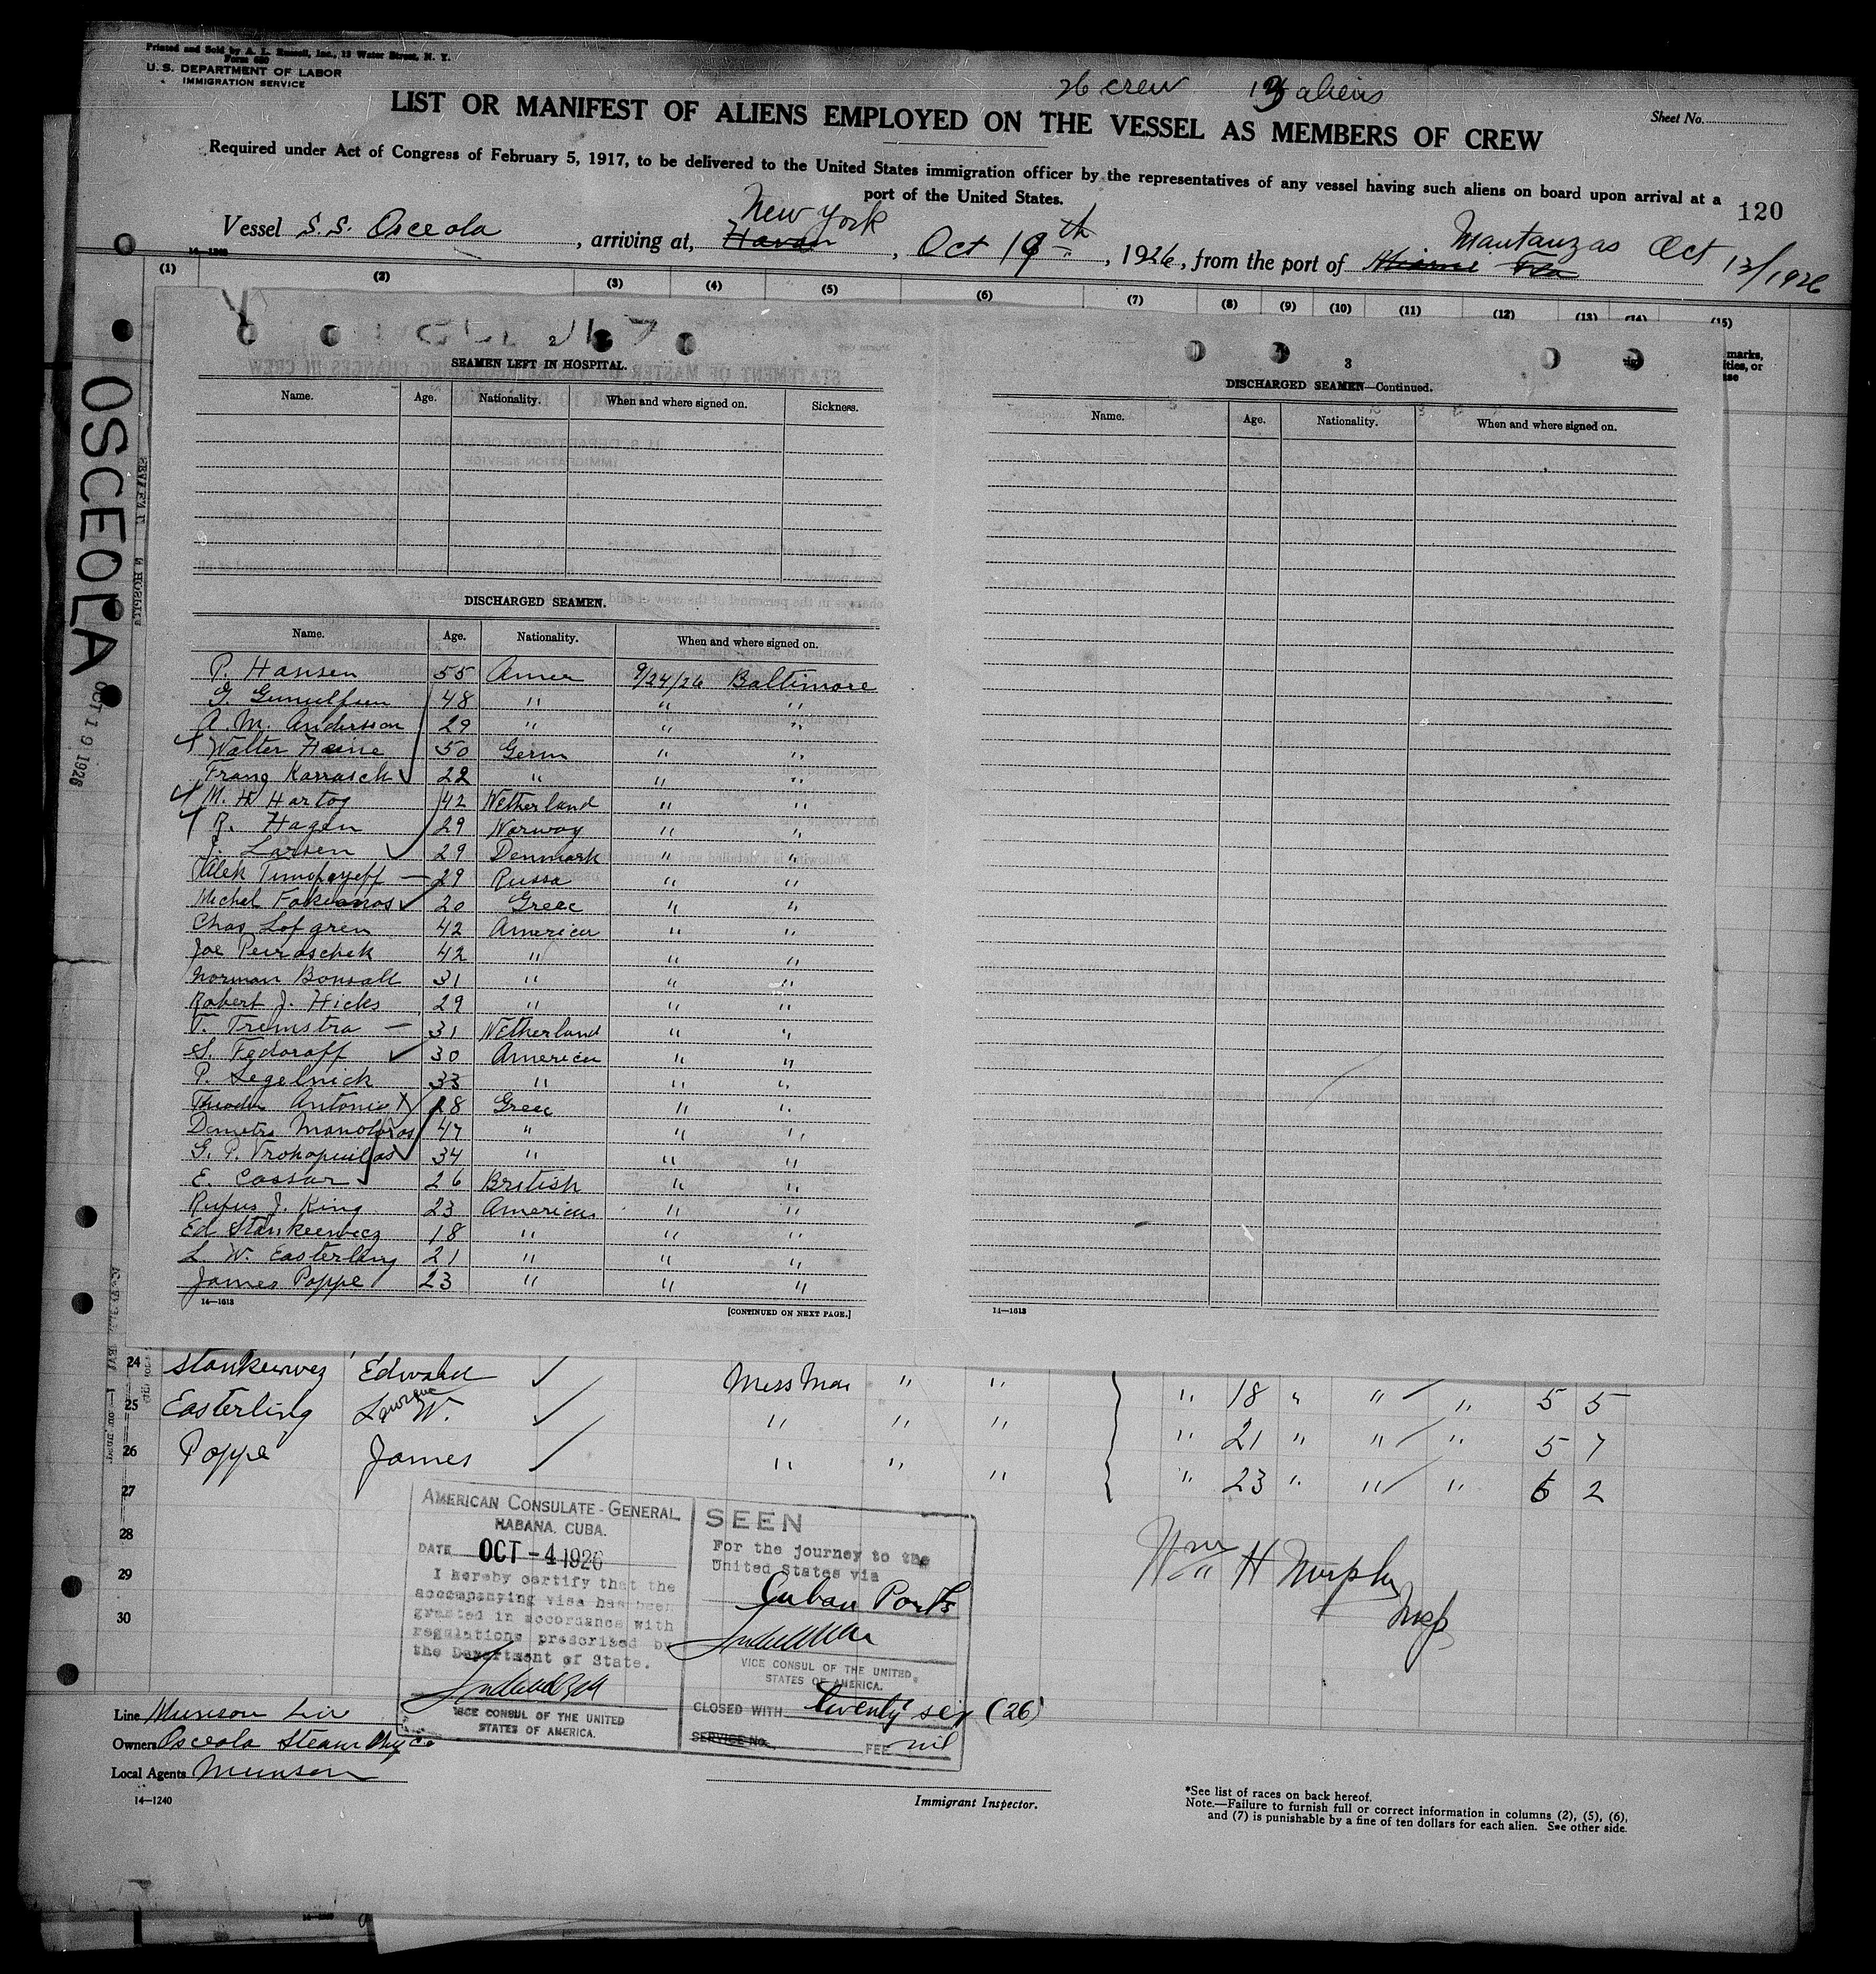 Printed and Sold by A. L. Russell, Inc., 12 Water Street, N. Y.
Form 680
U. S. DEPARTMENT OF LABOR
IMMIGRATION SERVICE
26 crew aliens
LIST OR MANIFEST OF ALIENS EMPLOYED ON THE VESSEL AS MEMBERS OF CREW
Sheet No.
Required under Act of Congress of February 5, 1917, to be delivered to the United States immigration officer by the representatives of any vessel having such aliens on board upon arrival at a
port of the United States.
120
Vessel S.S. Osceola, arriving at, New York, Oct 19th, 1926, from the port of Mantanzas Oct 13/1926
(1) (2) (3) (4) (5) (6) (7) (8) (9) (10) (11) (12) (13) (14) (15)
OSCEOLA
OCT 19 1926
2
SEAMEN LEFT IN HOSPITAL.
Name. Age. Nationality. When and where signed on. Sickness.
DISCHARGED SEAMEN.
Name. Age. Nationality. When and where signed on.
P. Hansen 55 Amer 9/24/26 Baltimore
G. 48 " " "
A. M. Anderson 29 " " "
Walter Heine 50 Germ " "
Franz Karrasch 22 " " "
M. H. Hartog 42 Netherland " "
R. Hagen 29 Norway " "
J. Larsen 29 Denmark " "
Alek Timofeyeff 29 Russa " "
Michel 20 Greec " "
Chas Lofgren 42 American " "
Joe 42 " " "
Norman Bonsall 31 " " "
Robert J. Hicks 29 " " "
T. Tremstra 31 Netherland " "
S. Fedoroff 30 American " "
P. Segelnick 33 " " "
Theodor Antoniex 28 Greec " "
Demetre 47 " " "
G. P. Vrohopoulos 34 " " "
E. Cassar 26 British " "
Rufus J. King 23 American " "
Ed Stankeewicz 18 " " "
L. W. Easterling 21 " " "
James Poppe 23 " " "
14—1613
[CONTINUED ON NEXT PAGE.]
3
DISCHARGED SEAMEN—Continued.
Name. Age. Nationality. When and where signed on.
14—1613
marks,
ities, or
ase
24 Stankeewez Edward Mess Man " " " 18 " " " 5 5
25 Easterling Lawrence W. " " " " 21 " " " 5 7
26 Poppe James " " " " 23 " " " 6 2
27
28
29
30
AMERICAN CONSULATE-GENERAL
HABANA, CUBA.
DATE OCT - 4 1926
I hereby certify that the
accompanying visa has been
granted in accordance with
regulations prescribed by
the Department of State.
VICE CONSUL OF THE UNITED
STATES OF AMERICA.
SEEN
For the journey to the
United States via
Cuban Ports
VICE CONSUL OF THE UNITED
STATES OF AMERICA.
CLOSED WITH twenty six (26)
SERVICE No. FEE nil
Wm H Murphy
Insp
Line Munson Line
Owners Osceola Steam Ship Co
Local Agents Munson
14—1240
Immigrant Inspector.
*See list of races on back hereof.
Note.—Failure to furnish full or correct information in columns (2), (5), (6),
and (7) is punishable by a fine of ten dollars for each alien. See other side.